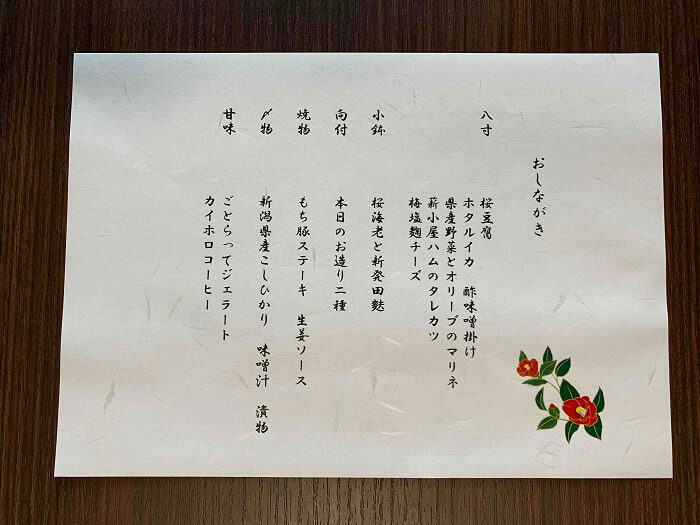 おしながき
八寸
桜豆腐
ホタルイカ 酢味噌掛け
県産野菜とオリーブのマリネ
薪小屋ハムのタレカツ
梅塩麹チーズ
小鉢 桜海老と新発田麩
向付 本日のお造り二種
焼物 もち豚ステーキ 生姜ソース
〆物 新潟県産こしひかり 味噌汁 漬物
甘味 ごとらってジェラート
カイホロコーヒー